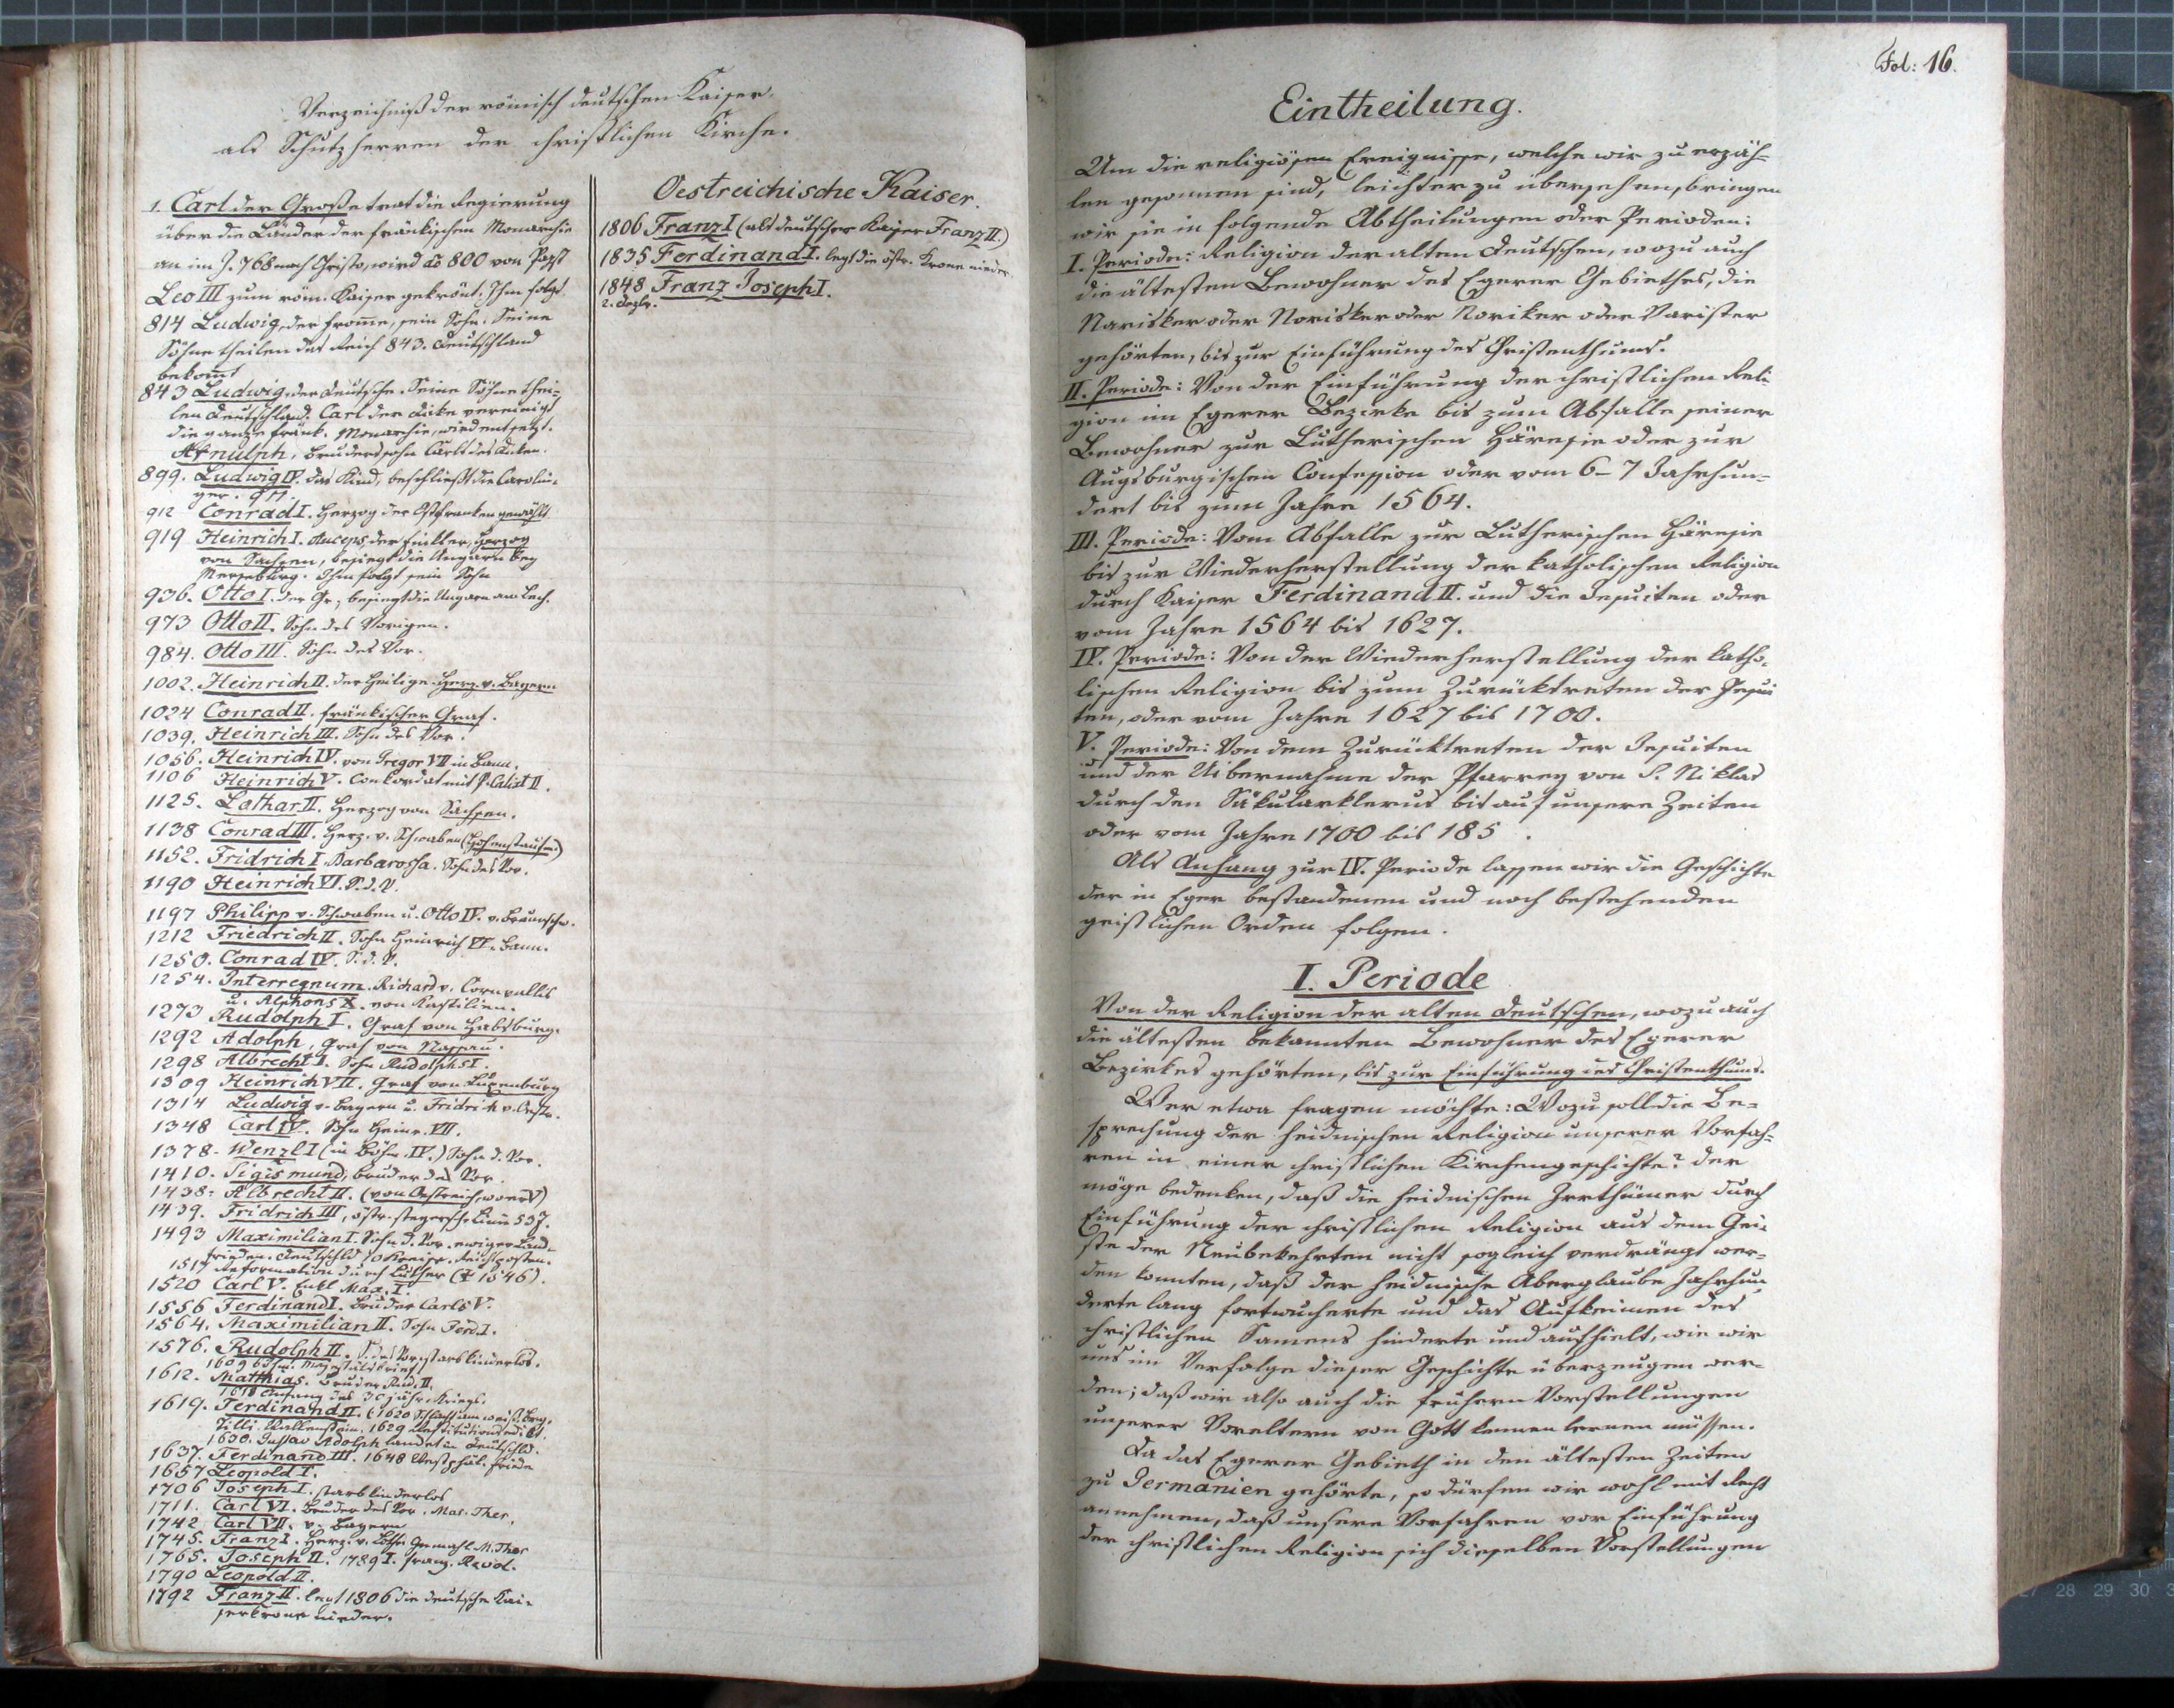 Verzeichniß der römisch deutschen Kaiser
als Schutzherren der christlichen Kirche.
1. Carl der Große trat die Regierung
über die Länder der fränkischen Monarchie
an im J. 768 nach Christo, wird ao 800 von Papst
Leo III zum röm. Kaiser gekrönt. Ihm folgt
814 Ludwig, der fromme, sein Sohn. Seine
Söhne theilen das Reich 843. Deutschland
bekomt
843 Ludwig, der Deutsche. Seine Söhne thei-
len Deutschland. Carl der Dicke vereinigt
die ganze fränk. Monarchie, wird entsetzt.
Arnulph, Bruderssohn Carls des Dicken.
899. Ludwig IV. das Kind, beschließt die Carolin-
ger. 911.
912 Conrad I. Herzog der Ostfranken gewählt
919 Heinrich I. Auceps der Finkler, Herzog
von Sachsen, besiegt die Ungarn bey
Merseburg. Ihm folgt sein Sohn
936. Otto I. der Gr., besiegt die Ungarn am Lech.
973 Otto II. Sohn des Vorigen.
984. Otto III. Sohn des Vor.
1002. Heinrich II. der Heilige Herz. v. Bayern
1024 Conrad II. fränkischer Graf.
1039. Heinrich III. Sohn des Vor.
1056. Heinrich IV. von Gregor VII in Bann.
1106 Heinrich V. Conkordat mit P. Calixt II.
1125. Lothar II. Herzog von Sachsen.
1138 Conrad III. Herz. v. Schwaben (Hohenstaufen)
1152. Fridrich I. Barbarossa. Sohn des Vor.
1190 Heinrich VI. S. d. V.
1197 Philipp v. Schwaben u. Otto IV. v. Braunschw.
1212 Friedrich II. Sohn Heinrich VI. Bann.
1250. Conrad IV. S. d. V.
1254. Interregnum. Richard v. Cornvallis
u. Alphons X. von Kastilien.
1273 Rudolph I. Graf von Habsburg.
1292 Adolph, Graf von Nassau.
1298 Albrecht I. Sohn Rudolphs I.
1309 Heinrich VII. Graf von Luxenburg
1314 Ludwig v. Bayern u. Fridrich v. Oestr.
1348 Carl IV. Sohn Heinr. VII.
1378. Wenzl I (in Böhm. IV.) Sohn d. Vor.
1410. Sigismund, Bruder des Vor.
1438. Albrecht II. (von Oestreich, war V)
1439. Fridrich III, östr. steyersche Linie 53 J.
1493 Maximilian I. Sohn d. Vor. ewiger Land-
frieden. Deutschld 10 Kreise. Reichsposten.
1517 Reformation durch Luther († 1546).
1520 Carl V. Enkl Max. I.
1556 Ferdinand I. Bruder Carls V.
1564. Maximilian II. Sohn Ferd. I.
1576. Rudolph II. S. des Vor. starb kinderlos.
1609 böhm. Majestätsbrief
1612. Matthias. Bruder Rud. II.
1618 Anfang des 30jähr. Kriegs.
1619. Ferdinand II. (1620 Schlacht am weiß. Berg.
Tilli. Wallenstein. 1629 Restitutionsedikt.
1630. Gustav Adolph landet in Deutschld.
1637. Ferdinand III. 1648 Westphäl. Friede
1657 Leopold I.
1706 Joseph I. starb kinderlos
1711. Carl VI. Bruder des Vor. Mar. Ther.
1742 Carl VII. v. Bayern
1745. Franz I. Herz. v. Lothr. Gemahl M. Ther
1765. Joseph II. 1789 I. franz. Revol.
1790 Leopold II.
1792 Franz II. legt 1806 die deutsche Kai-
serkrone nieder.
Oestreichische Kaiser.
1806 Franz I (als deutscher Kaiser Franz II.)
1835 Ferdinand I. legt die östr. Krone nieder.
1848 Franz Joseph I.
2. Dezbr.
Fol: 16.
Eintheilung.
Um die religiösen Ereignisse, welche wir zu erzäh-
len gesonnen sind, leichter zu übersehen, bringen
wir sie in folgende Abtheilungen oder Perioden:
I. Periode: Religion der alten Deutschen, wozu auch
die ältesten Bewohner des Egerer Gebiethes, die
Narisker oder Norisker oder Noriker oder Varister
gehörten, bis zur Einführung des Christenthums.
II. Periode: Von der Einführung der christlichen Reli-
gion im Egerer Bezirke bis zum Abfalle seiner
Bewohner zur Lutherischen Häresie oder zur
Augsburgischen Confession oder vom 6-7 Jahrhun-
dert bis zum Jahre 1564.
III. Periode: Vom Abfalle zur Lutherischen Häresie
bis zur Wiederherstellung der katholischen Religion
durch Kaiser Ferdinand II. und die Jesuiten oder
vom Jahre 1564 bis 1627.
IV. Periode: Von der Wiederherstellung der katho-
lischen Religion bis zum Zurücktreten der Jesui
ten, oder vom Jahre 1627 bis 1700.
V. Periode: Von dem Zurücktreten der Jesuiten
und der Uibernahme der Pfarrey von S. Niklas
durch den Säkularklerus bis auf unsere Zeiten
oder vom Jahre 1700 bis 185 .
Als Anhang zur IV. Periode lassen wir die Geschichte
der in Eger bestandenen und noch bestehenden
geistlichen Orden folgen.
I. Periode
Von der Religion der alten Deutschen, wozu auch
die ältesten bekannten Bewohner des Egerer
Bezirkes gehörten, bis zur Einführung des Christenthums.
Wer etwa fragen möchte: Wozu soll die Be-
sprechung der heidnischen Religion unserer Vorfah-
ren in einer christlichen Kirchengeschichte? der
möge bedenken, daß die heidnischen Irrthümer durch
Einführung der christlichen Religion aus dem Gei-
ste der Neubekehrten nicht sogleich verdrängt wer-
den konnten, daß der heidnische Aberglaube Jahrhun
derte lang fortwucherte und das Aufkeimen des
christlichen Samens hinderte und aufhielt, wie wir
uns im Verfolge dieser Geschichte überzeugen wer-
den; daß wir also auch die frühern Vorstellungen
unserer Voreltern von Gott kennen lernen müssen.
Da das Egerer Gebieth in den ältesten Zeiten
zu Germanien gehörte, so dürfen wir wohl mit Recht
annehmen, daß unsere Vorfahren vor Einführung
der christlichen Religion sich dieselben Vorstellungen
27 28 29 30 3